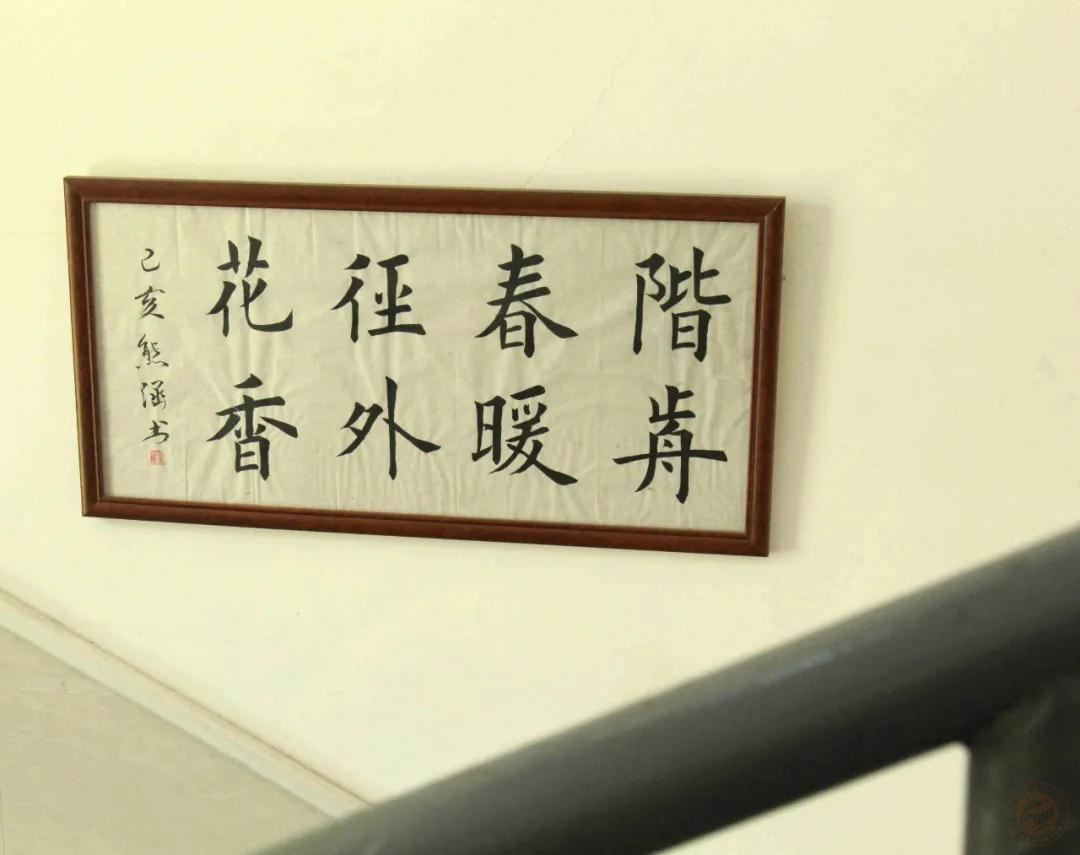 階歬
春暖
徑外
花香
己亥熊涵书